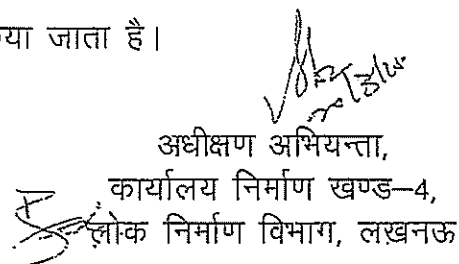 या जाता है।
अधीक्षण अभियन्ता,
कार्यालय निर्माण खण्ड–4,
लोक निर्माण विभाग, लखनऊ